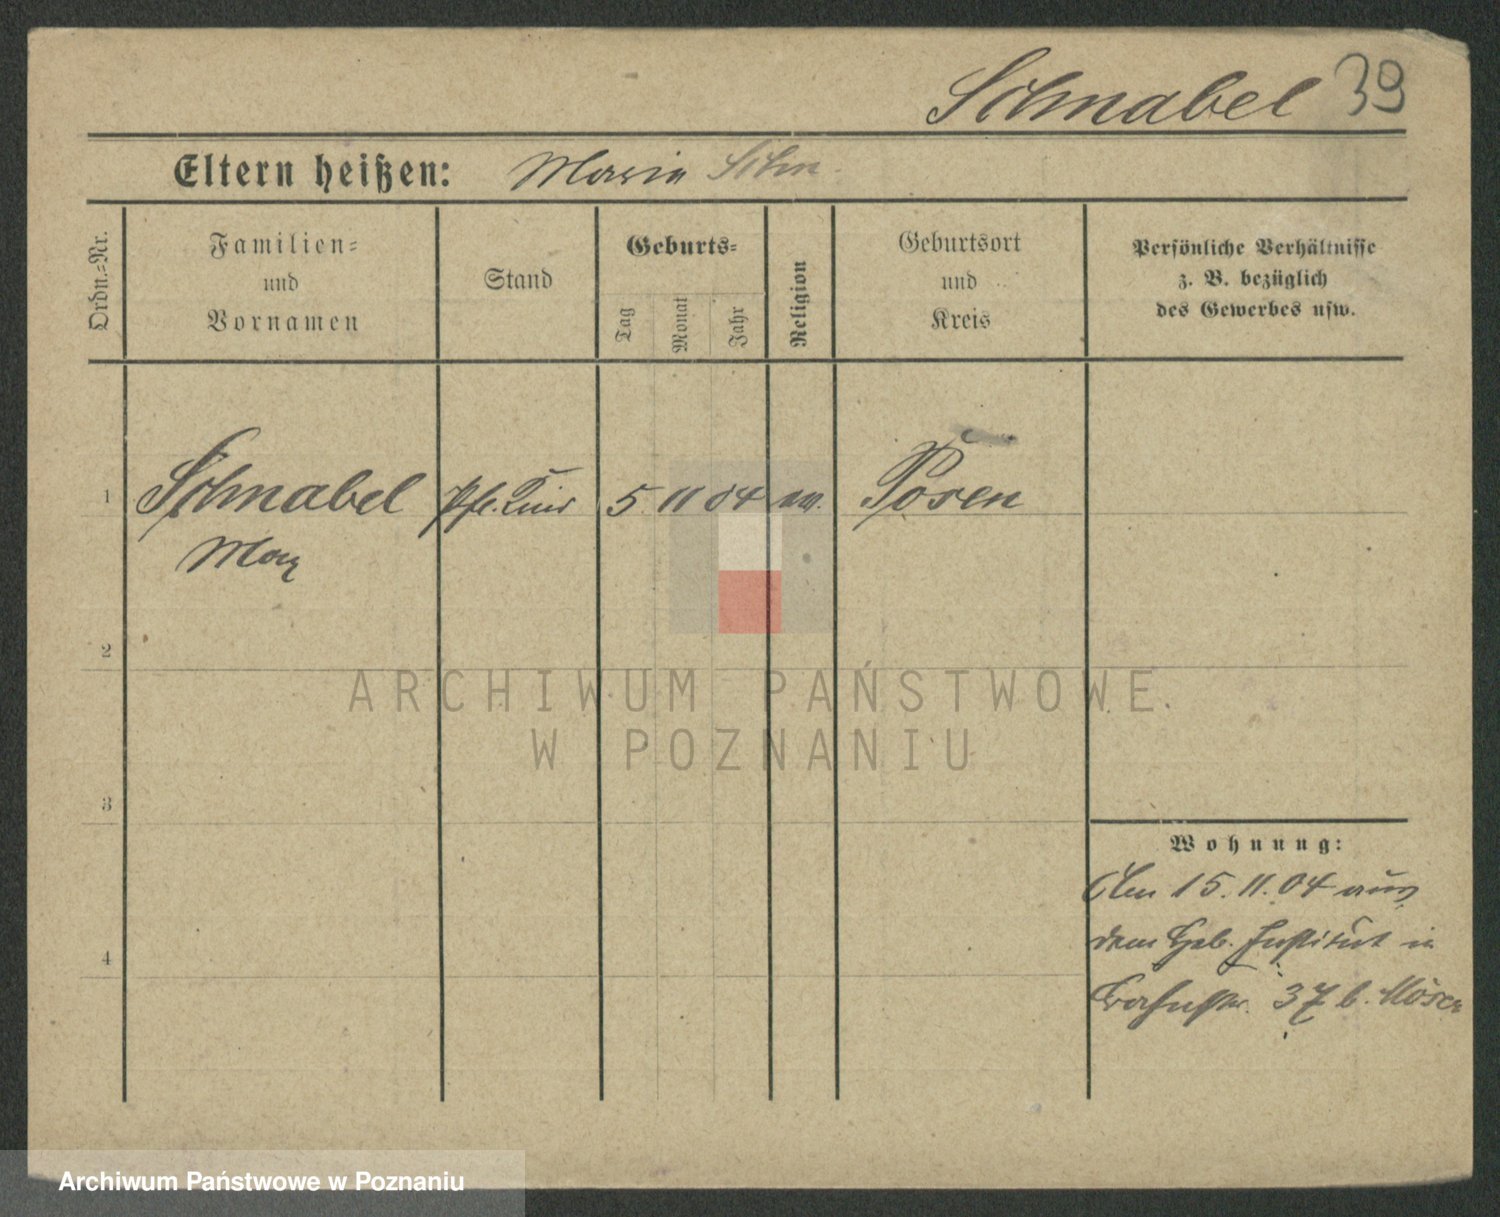 Schnabel 39
Eltern heißen: Maria Schn.
Ordn.=Nr.
Familien=
und
Vornamen
Stand
Geburts=
Tag
Monat
Jahr
Religion
Geburtsort
und
Kreis
Persönliche Verhältnisse
z. B. bezüglich
des Gewerbes usw.
1 Schnabel 5 11 04 Posen
Max
2
3
4
Wohnung:
Am 15.11.04 aus
dem Geb. Institut in
37 b.
ARCHIWUM PAŃSTWOWE
W POZNANIU
Archiwum Państwowe w Poznaniu